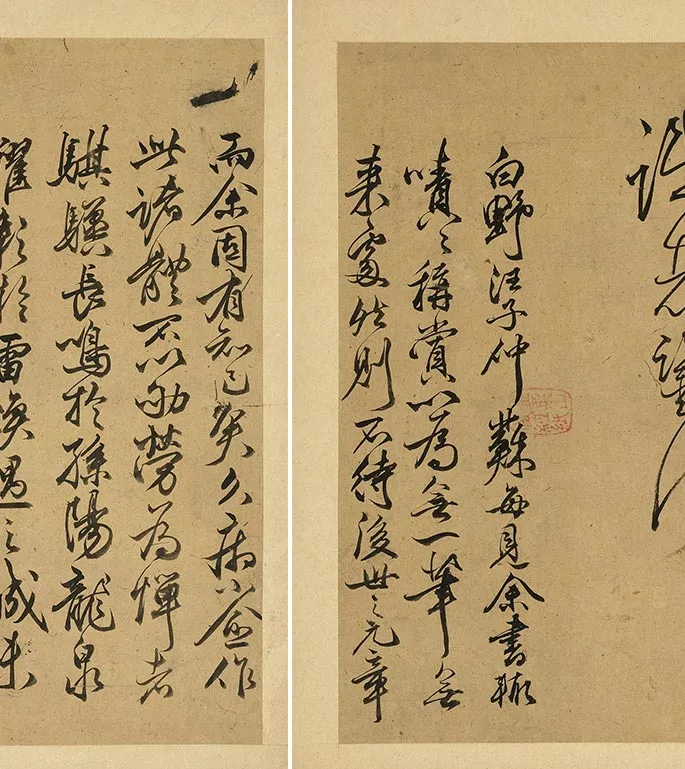 白野汪子仲蘇每見余書輒
嘖〻稱賞以為無一筆無
來處然則不待後世之元章
而余固有知己矣久病小愈作
此諸體不以劬勞為憚者
騏驥長鳴於孫陽龍泉
耀彩於雷煥遇之誠未